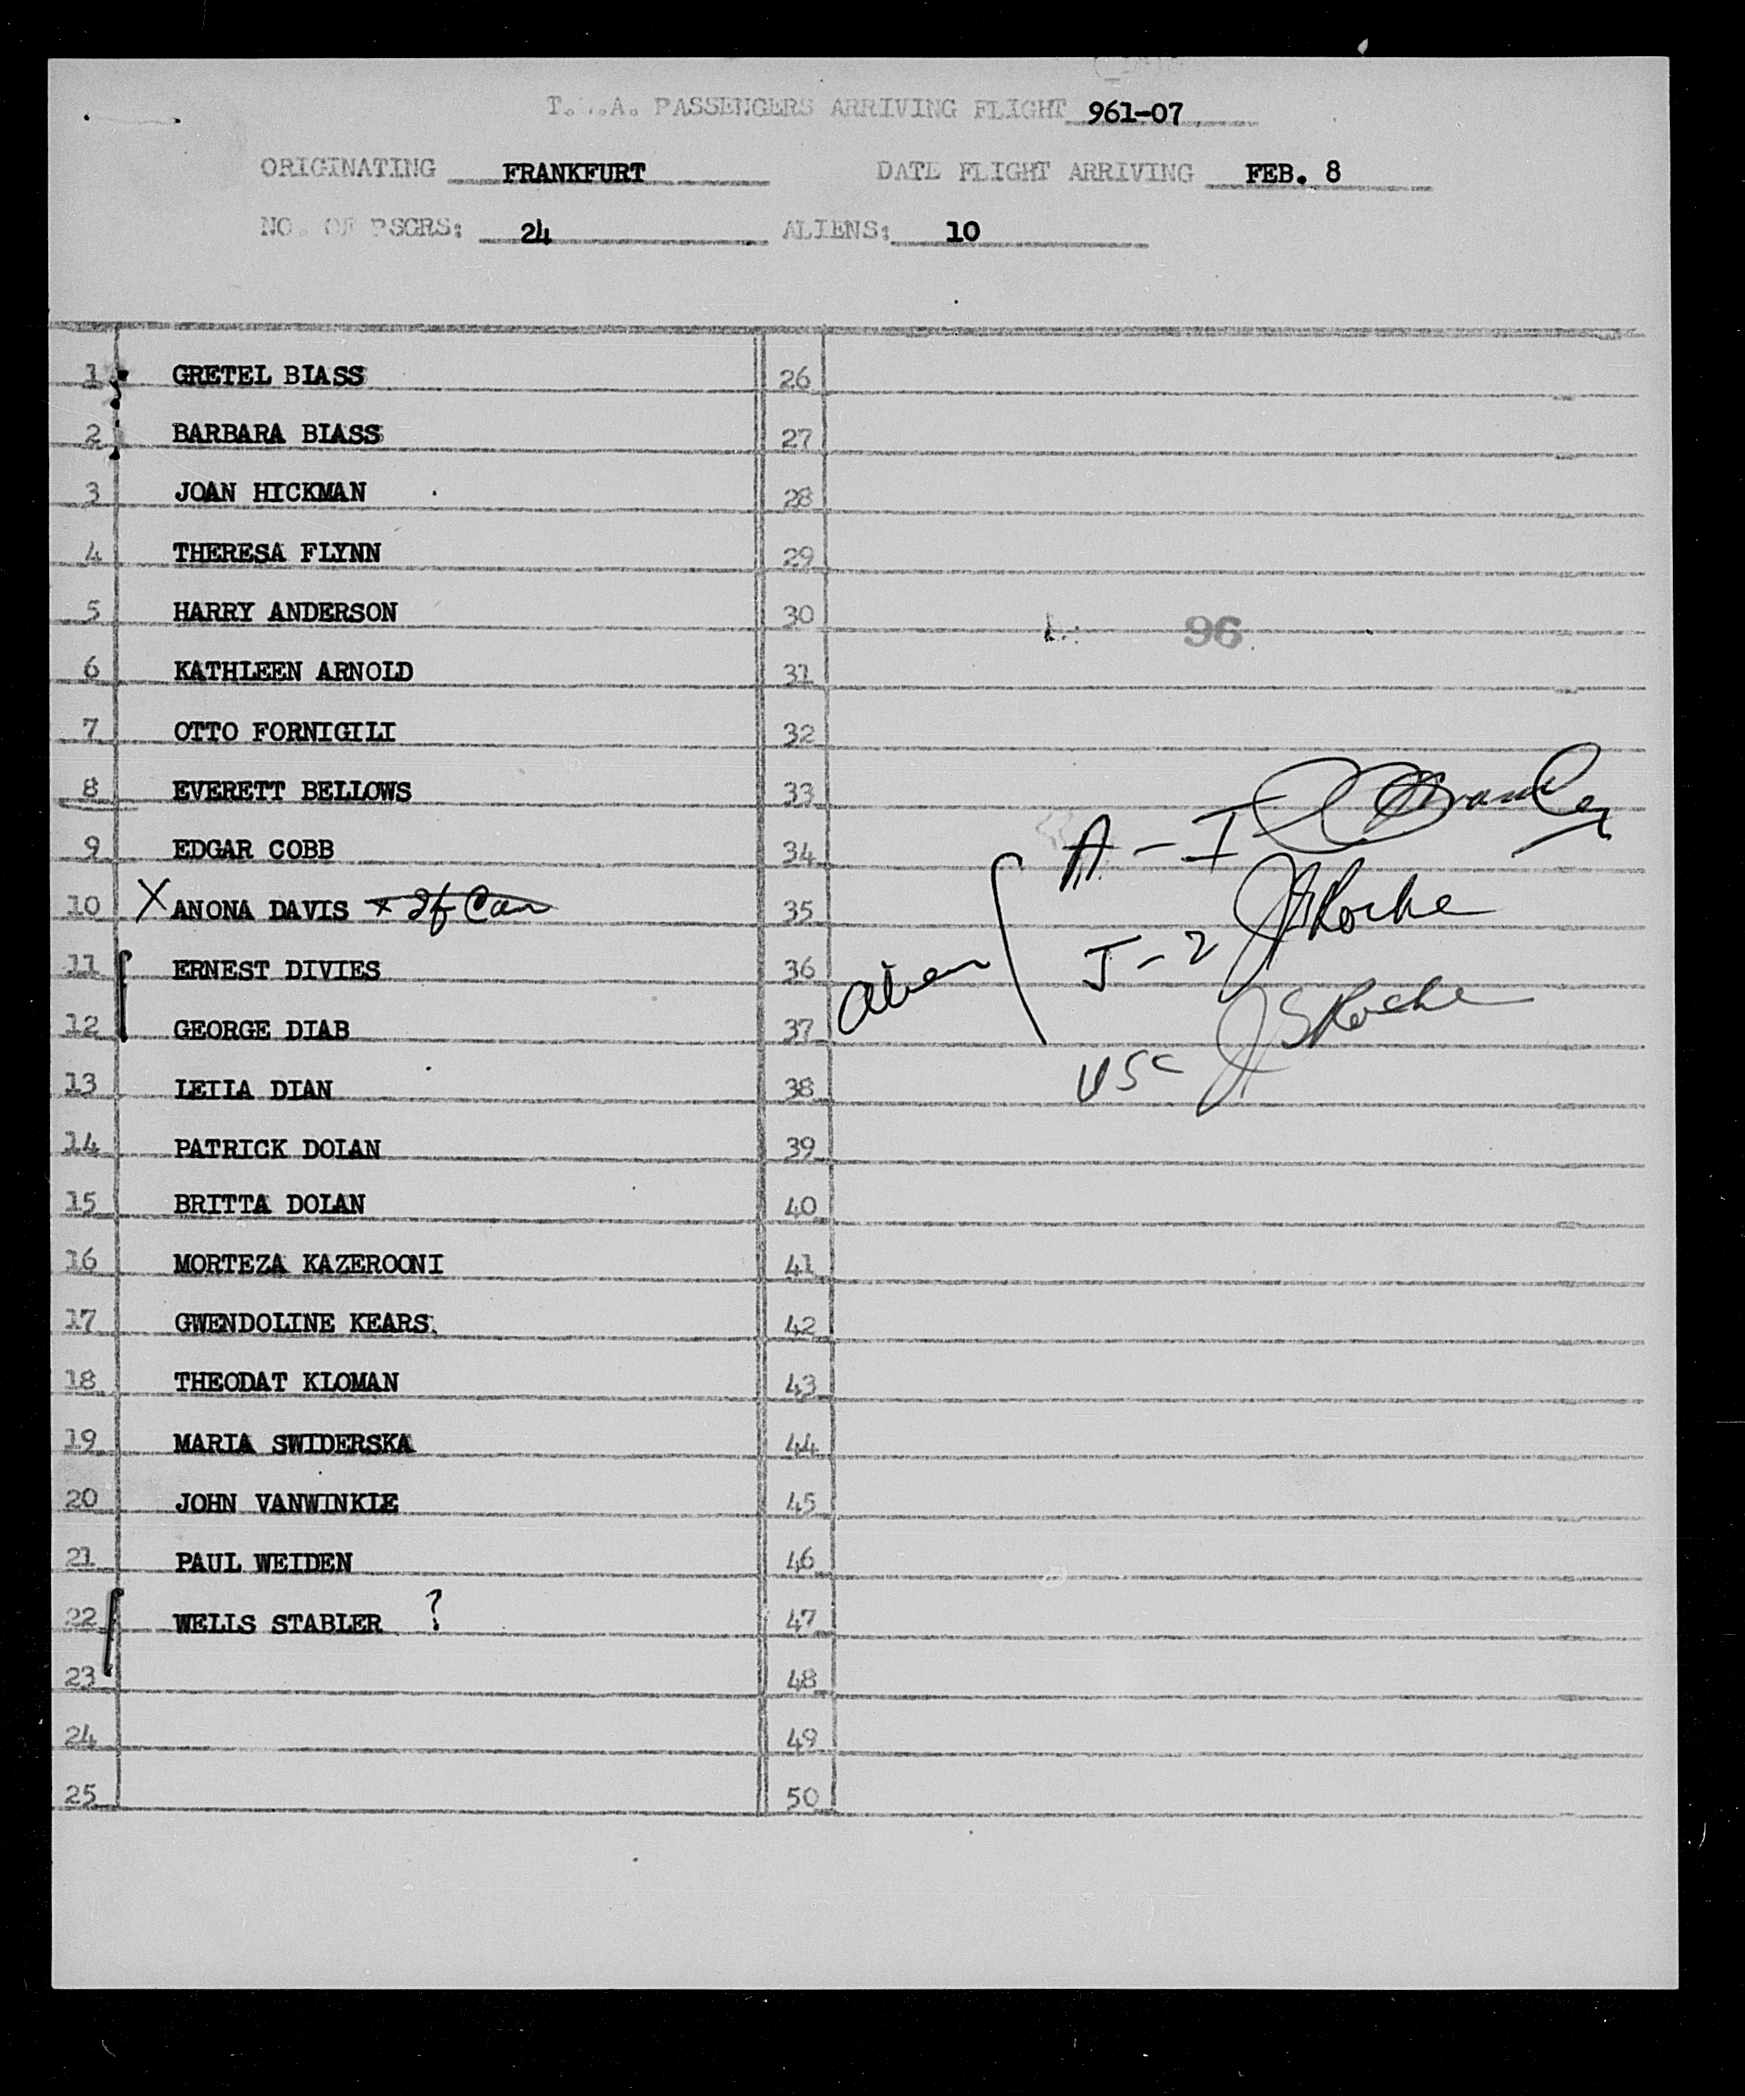 T.W.A. PASSENGERS ARRIVING FLIGHT 961-07
ORIGINATING FRANKFURT DATE FLIGHT ARRIVING FEB. 8
NO. OF PSGRS: 24 ALIENS: 10
1 GRETEL BIASS
2 BARBARA BIASS
3 JOAN HICKMAN
4 THERESA FLYNN
5 HARRY ANDERSON
6 KATHLEEN ARNOLD
7 OTTO FORNIGILI
8 EVERETT BELLOWS
9 EDGAR COBB
10 X ANONA DAVIS
11 ERNEST DIVIES
12 GEORGE DIAB
13 LEILA DIAN
14 PATRICK DOLAN
15 BRITTA DOLAN
16 MORTEZA KAZEROONI
17 GWENDOLINE KEARS
18 THEODAT KLOMAN
19 MARIA SWIDERSKA
20 JOHN VANWINKLE
21 PAUL WEIDEN
22 WELLS STABLER ?
23
24
25
26
27
28
29
30 96
31
32
33
34 A - I
35
36 J - 2 JSRoche
37 alien
38 USC JSRoche
39
40
41
42
43
44
45
46
47
48
49
50